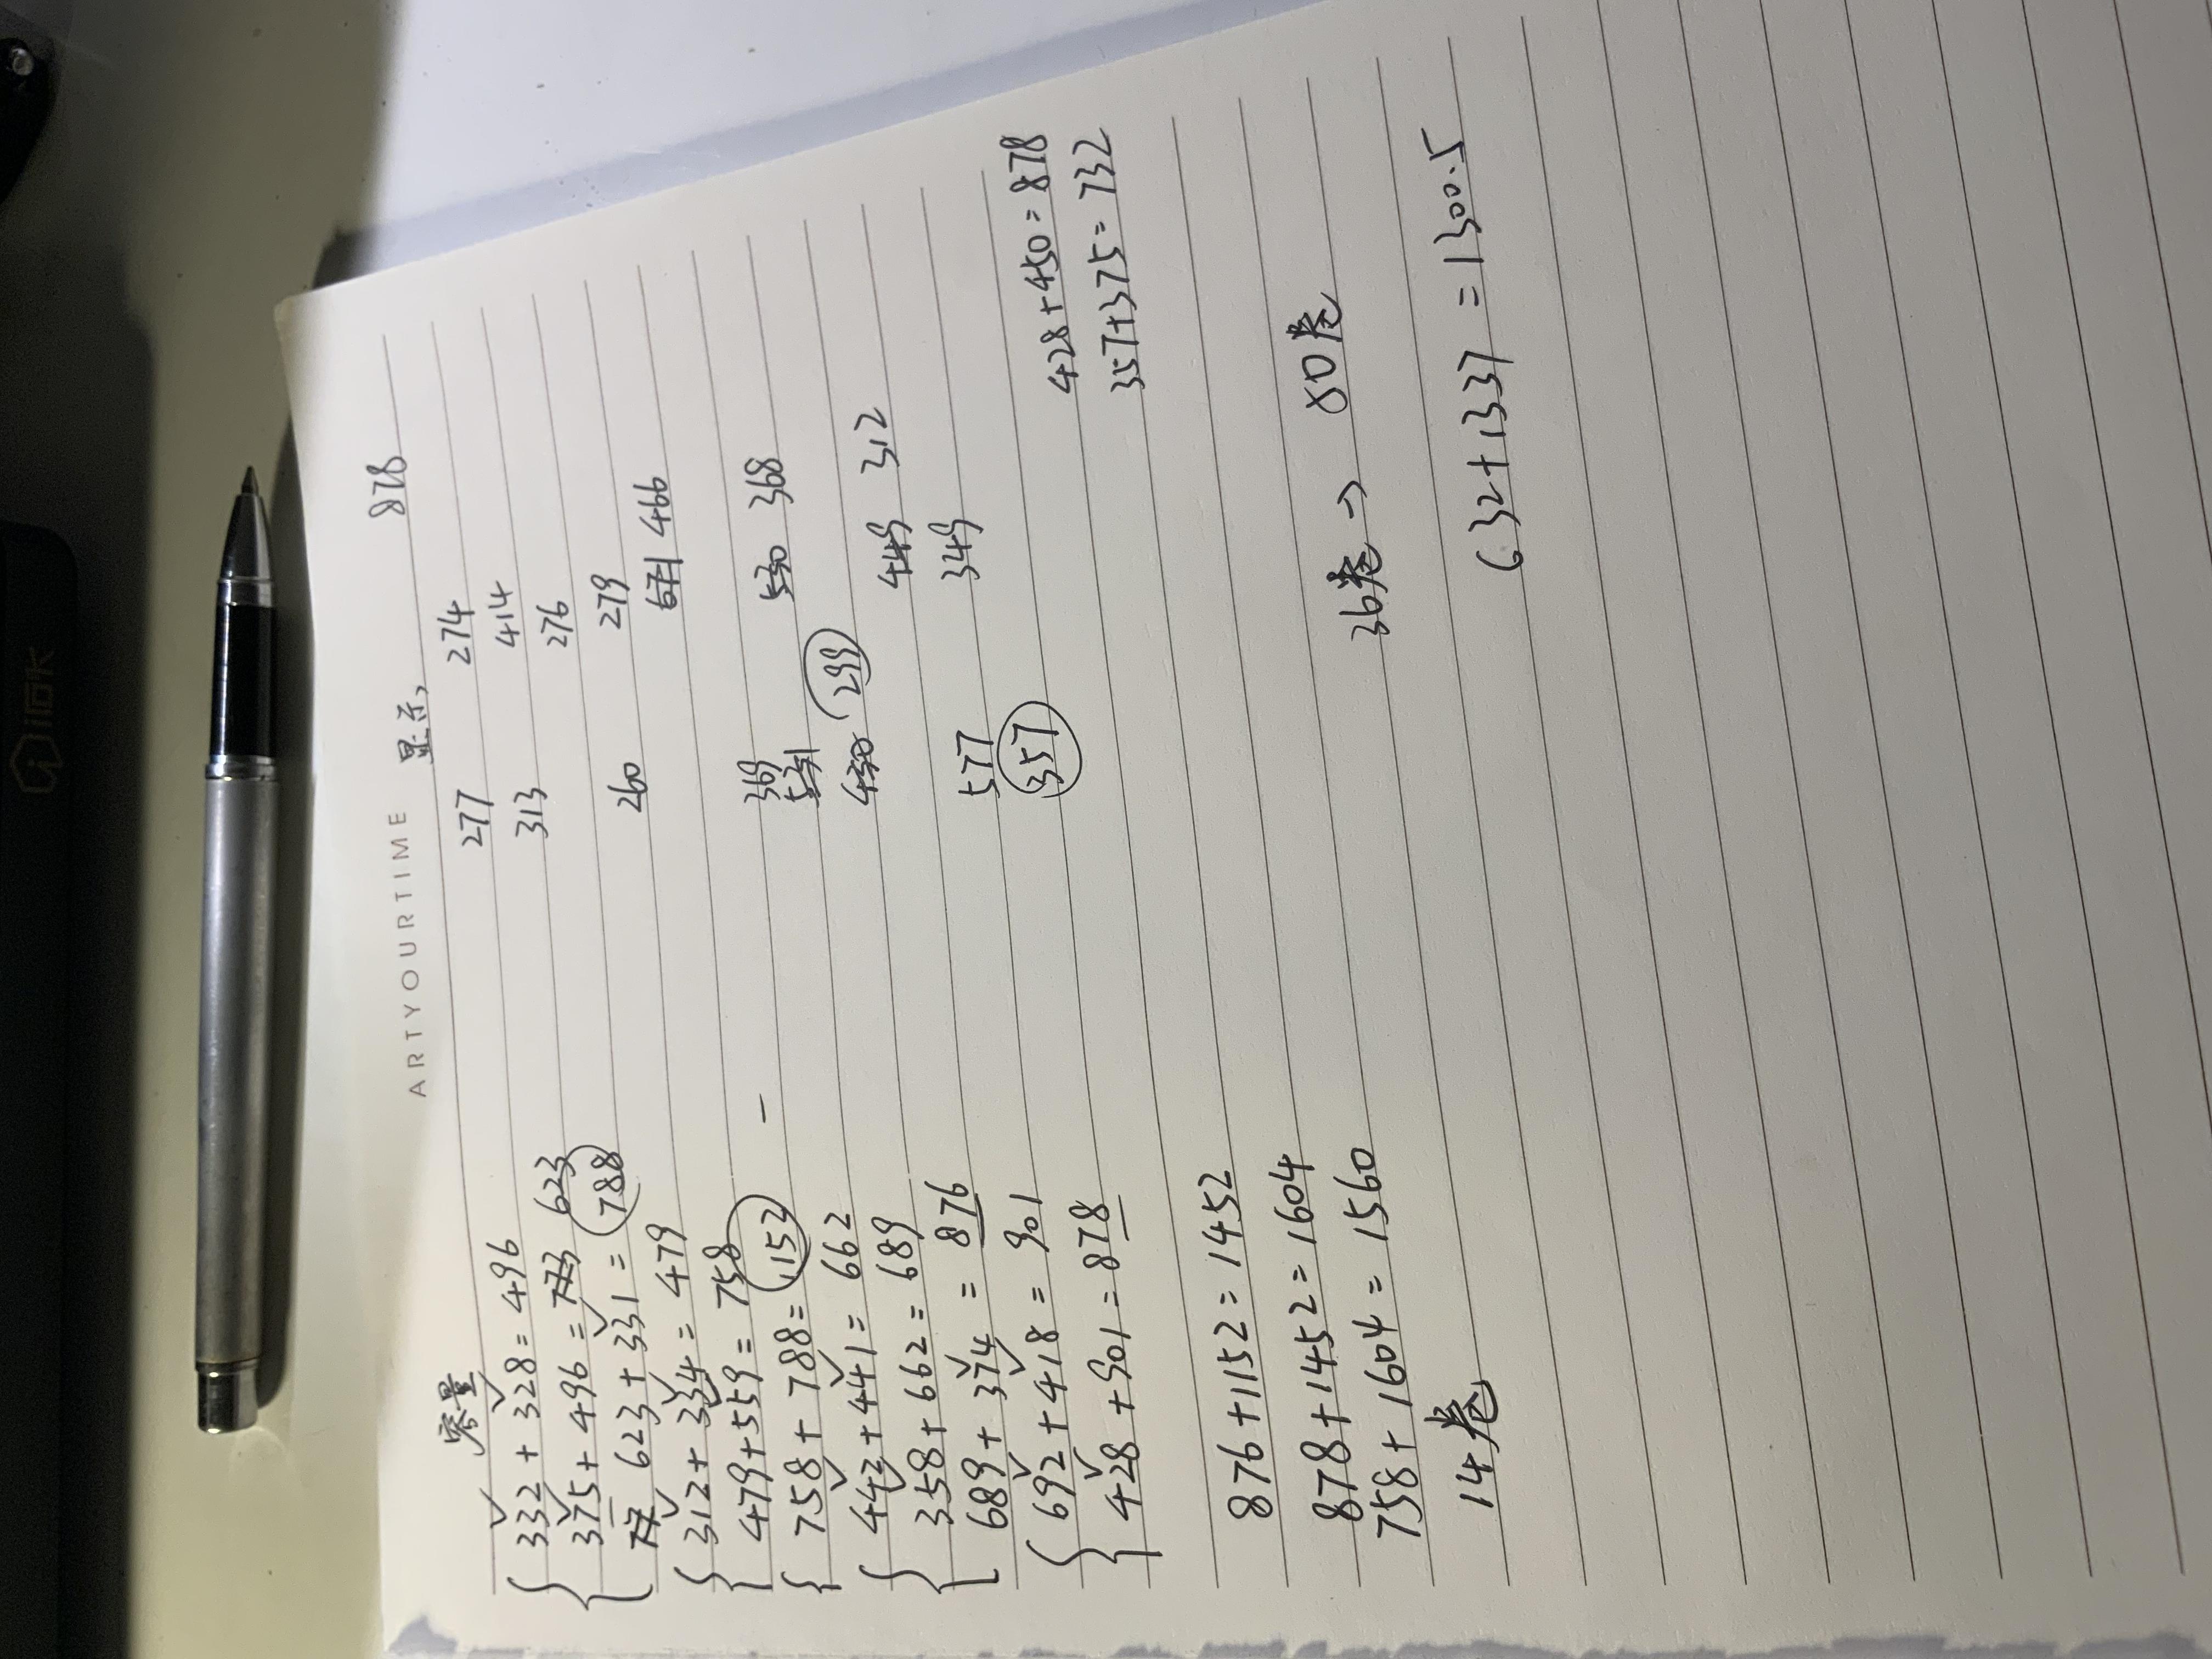 ARTYOURTIME
容量 显示 878
332 + 328 = 496 277 274
375 + 496 = 773 623 313 414
77 623 + 331 = 788 276
312 + 334 = 479 260 279
479 + 559 = 758 671 466
758 + 788 = 1152 — 369
443 + 441 = 662 531 530 368
358 + 662 = 689 430 299
689 + 374 = 876 449 312
692 + 418 = 901 577 349
428 + 901 = 878 357
428 + 450 = 878
357 + 375 = 732
876 + 1152 = 1452
878 + 1452 = 1604
758 + 1604 = 1560
14卷
36卷 → 80卷
632 + 1337 = 1300.5